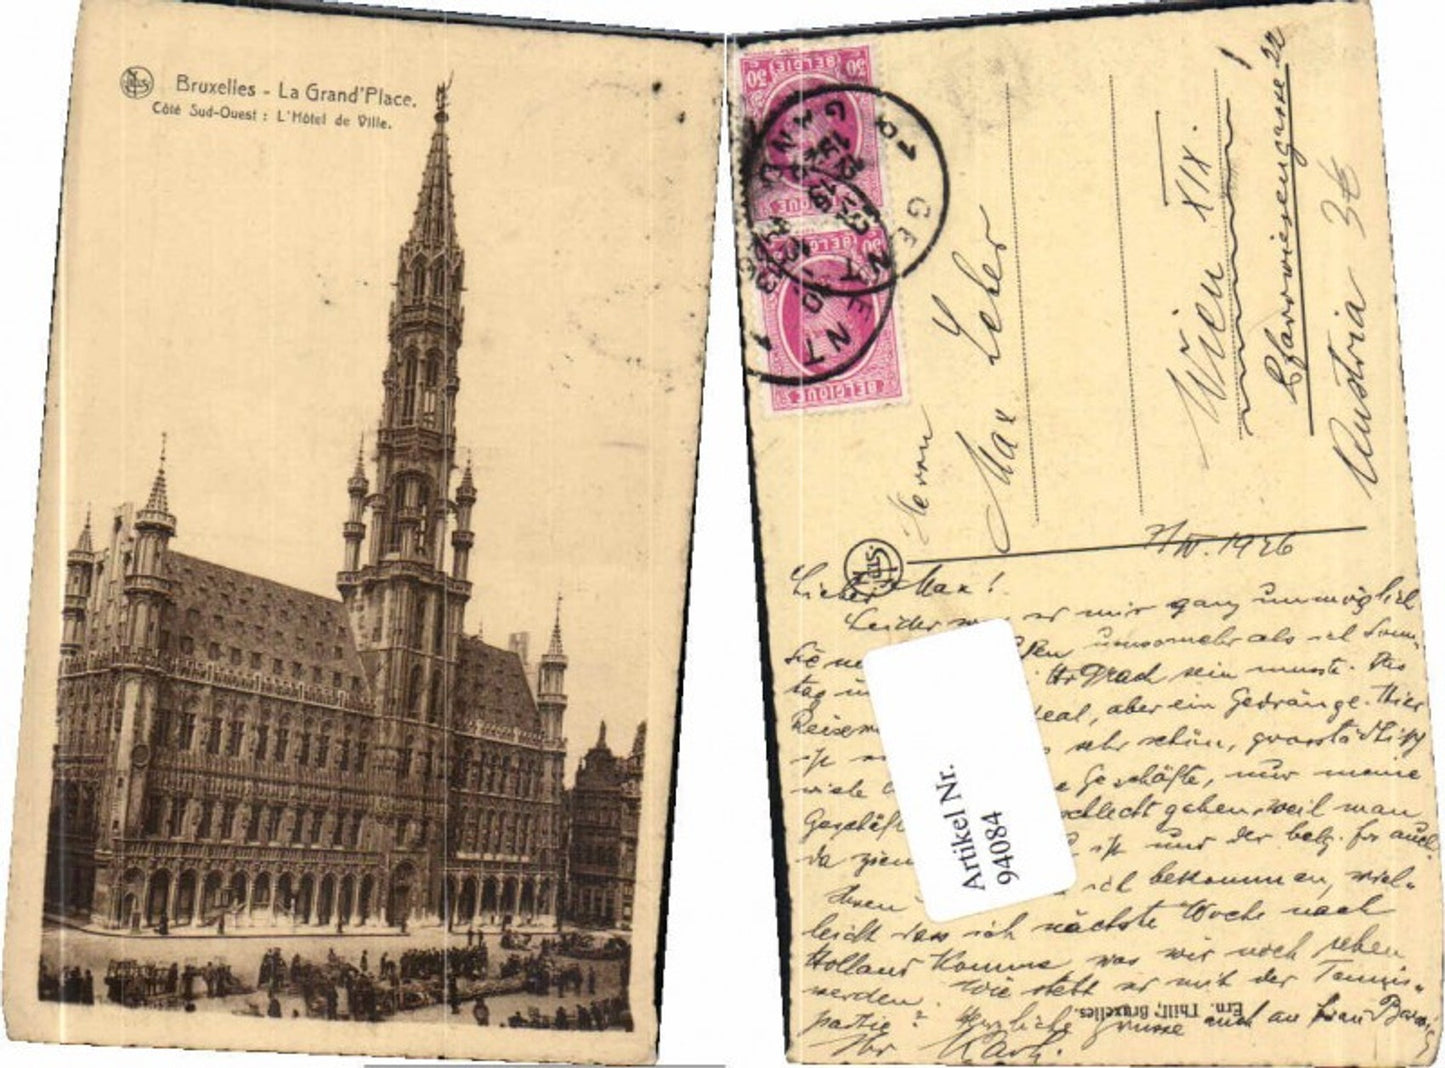 NELS
Bruxelles - La Grand'Place.
Côté Sud-Ouest : L'Hôtel de Ville.
BELGIE
50 50
BELGIQUE
50
BELGIQUE
GENT
1 GENT 1
Herrn
Max Leher
Wien XIX.
Pfarrwiesengasse 22
Austria
NELS
7/IV. 1926
Lieber Max!
Leider war es mir ganz unmöglich
Sie umsomehr als ich Sonn-
tag sein musste. Das
Reisen aber ein Gedränge. Hier
ist sehr schön, grosstädtisch
viele Geschäfte, nur meine
Geschäft schlecht gehen, weil man
da ist und der belg. fr auch
ich bekommen, viel-
leicht dass ich nächste Woche nach
Holland komme, was wir noch sehen
werden. Wie steht es mit der Tennis-
partie? Herzliche Grüsse auch an Frau
Ihr Karl.
Ern. Thill, Bruxelles.
Artikel Nr.
94084